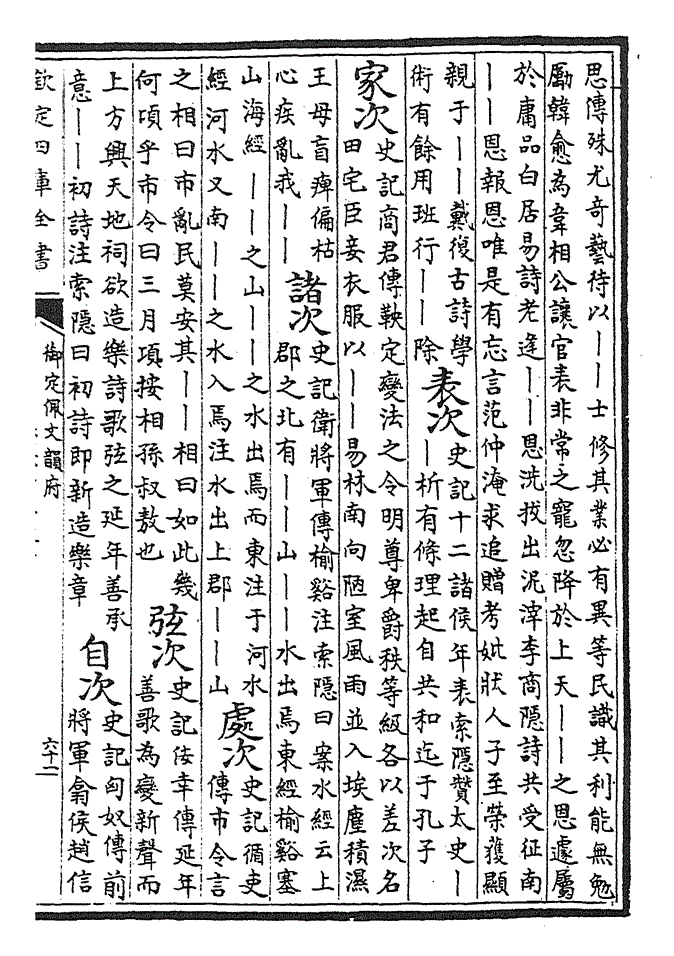 思傳殊尤奇藝待以——士修其業必有異等民識其利能無勉
勵韓愈為韋相公讓官表非常之寵忽降於上天——之恩遽屬
於庸品白居易詩老逢——恩洗拔出泥滓李商隱詩共受征南
——恩報恩唯是有忘言范仲淹求追贈考妣狀人子至榮獲顯
親于——戴復古詩學
術有餘用班行——除
表次
史記十二諸侯年表索隱贊太史—
—析有條理起自共和迄于孔子
家次
史記商君傳鞅定變法之令明尊卑爵秩等級各以差次名
田宅臣妾衣服以——易林南向陋室風雨並入埃塵積濕
王母盲痺偏枯
心疾亂我——
諸次
史記衛將軍傳榆谿注索隱曰案水經云上
郡之北有——山——水出焉東經榆谿塞
山海經——之山——之水出焉而東注于河水
經河水又南——之水入焉注水出上郡——山
處次
史記循吏
傳市令言
之相曰市亂民莫安其——相曰如此幾
何頃乎市令曰三月頃按相孫叔敖也
弦次
史記佞幸傳延年
善歌為變新聲而
上方興天地祠欲造樂詩歌弦之延年善承
意——初詩注索隱曰初詩即新造樂章
自次
史記匈奴傳前
將軍翕侯趙信
欽定四庫全書
御定佩文韻府
六十一